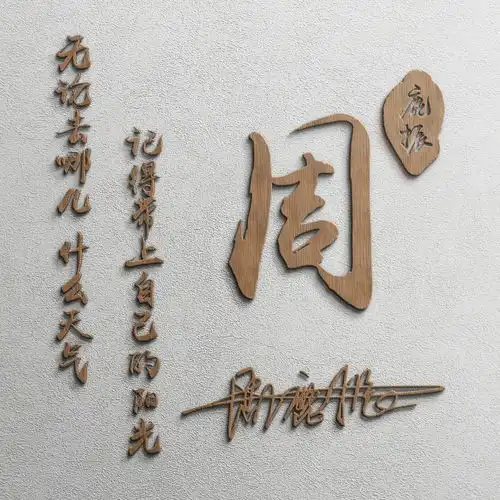 无论去哪儿 什么天气
记得带上自己的阳光
周
鹿振